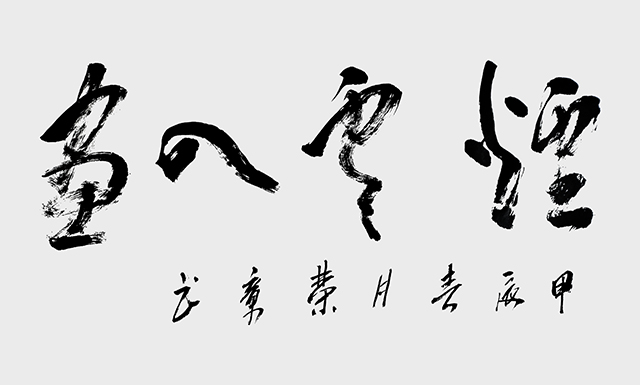 煙雲入畫
甲辰春月榮书